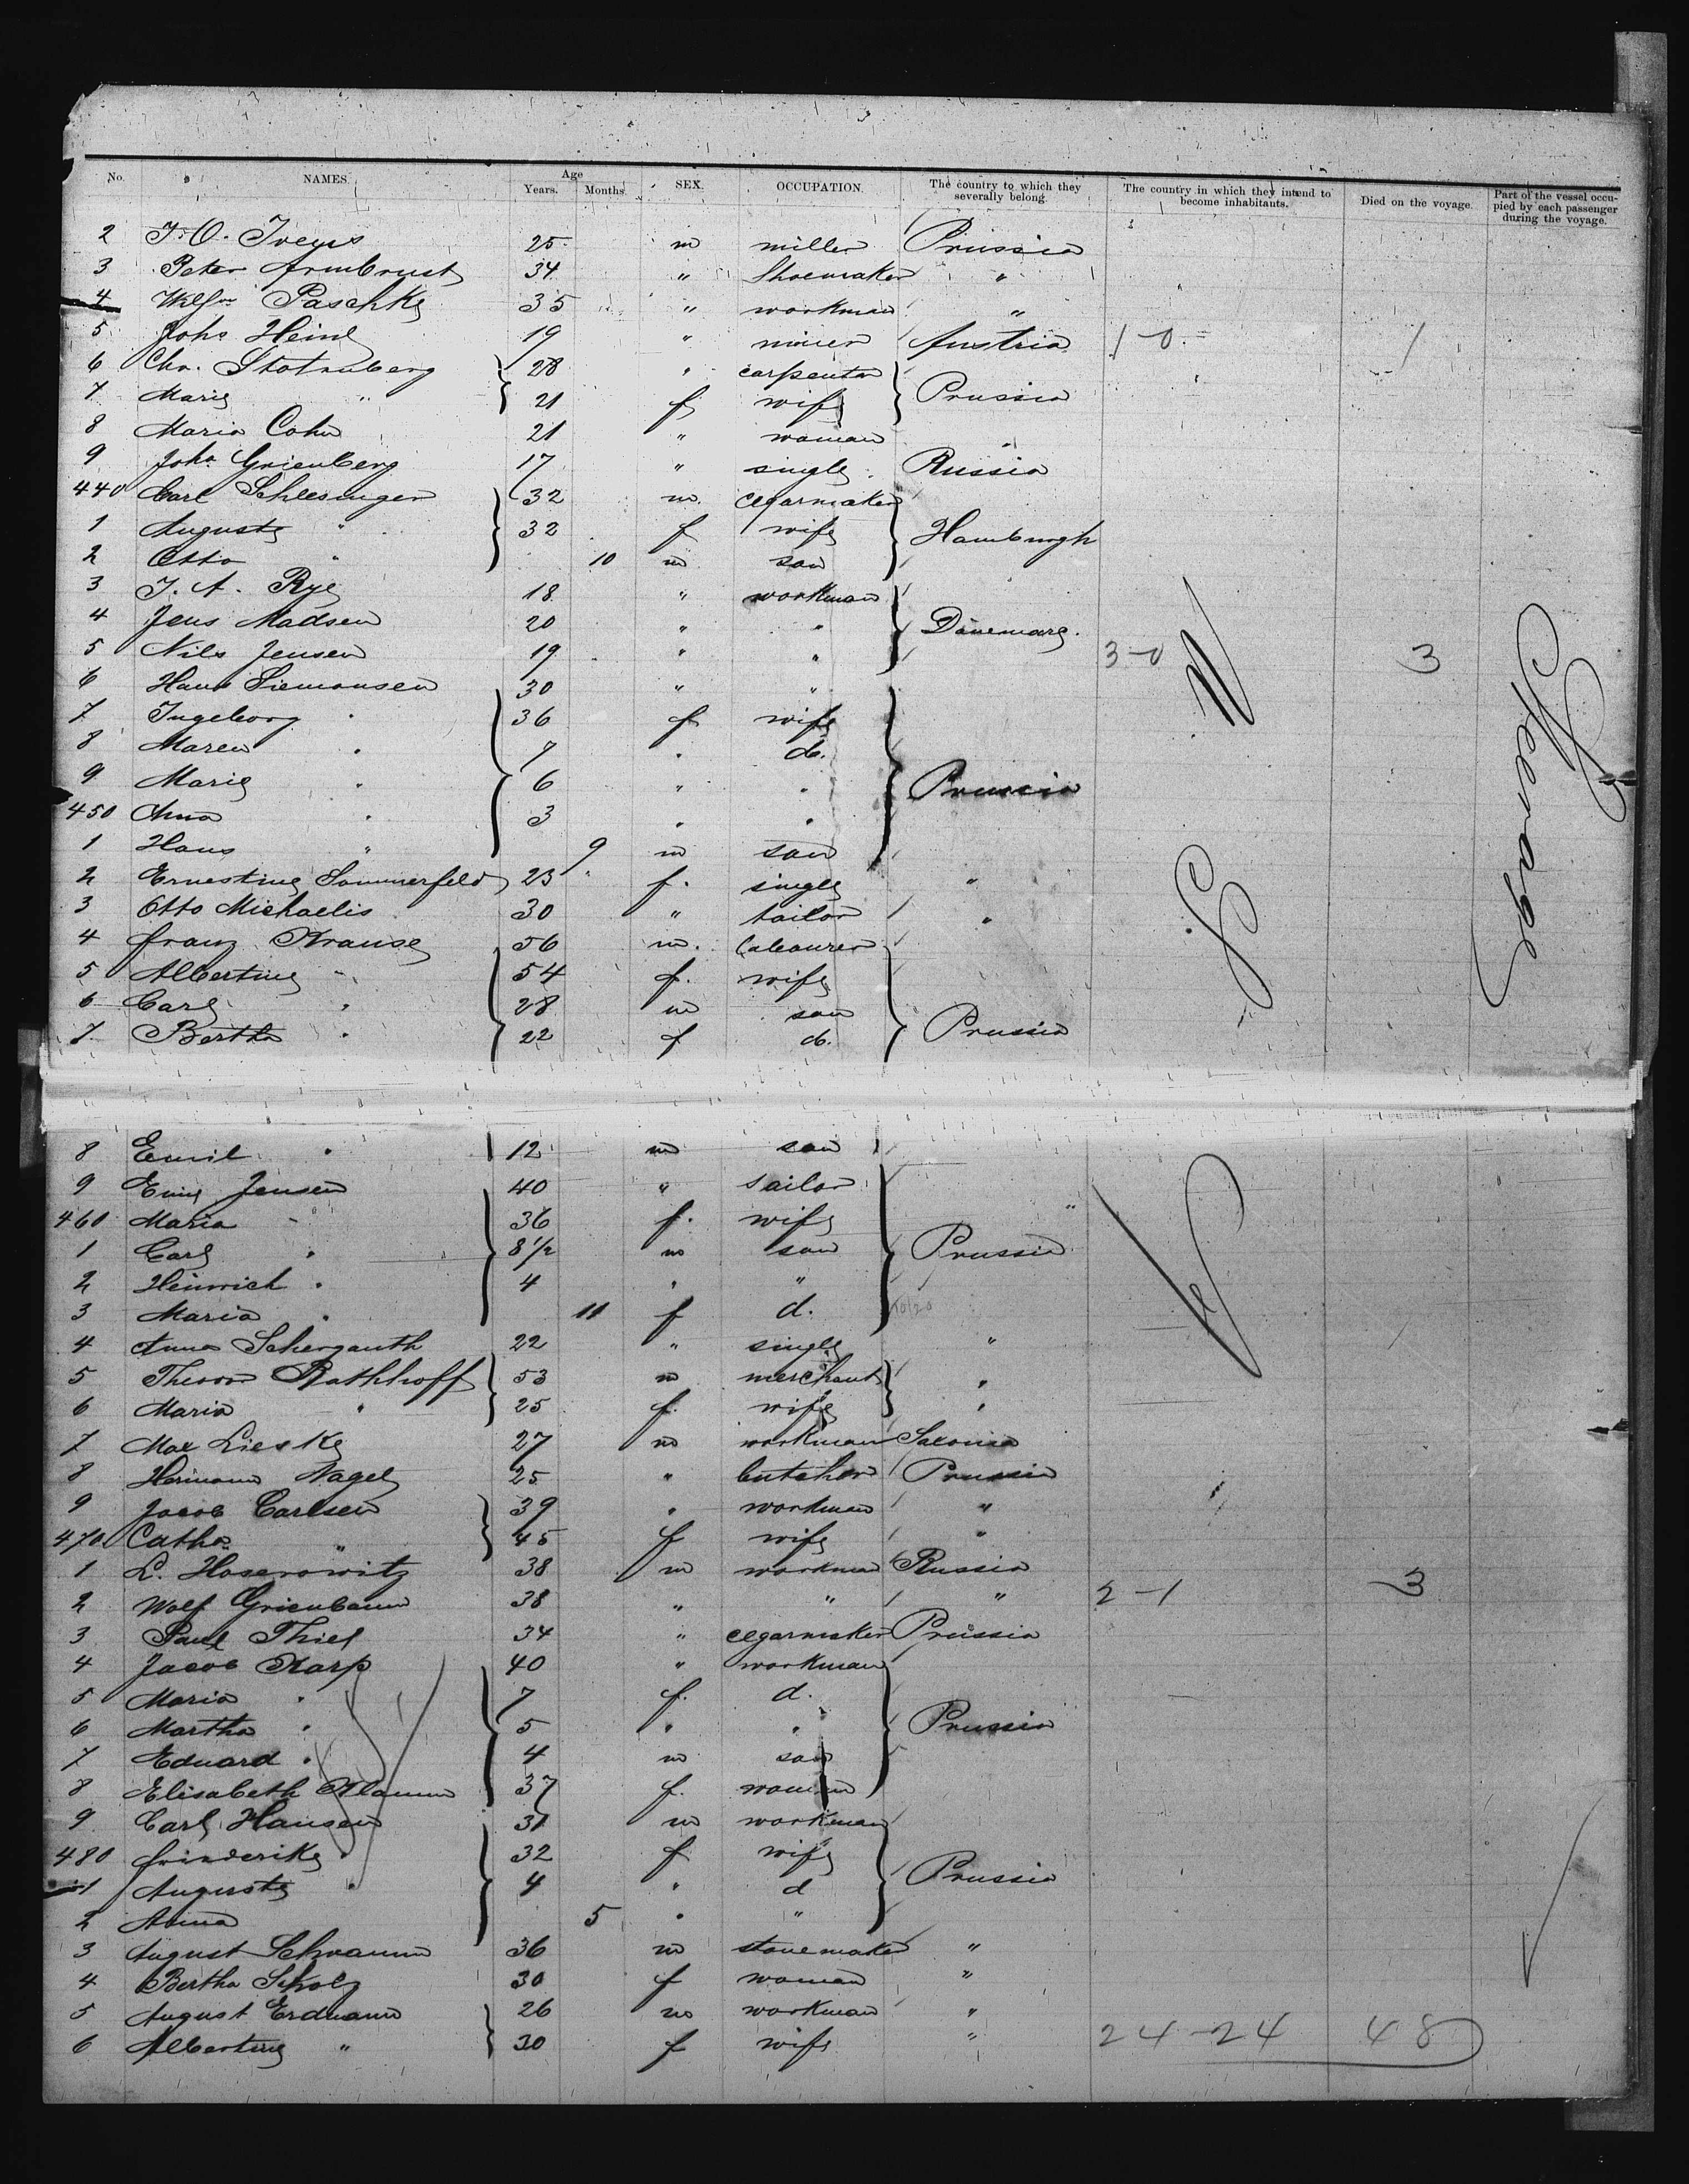 No. NAMES. Age Years. Months. SEX. OCCUPATION. The country to which they severally belong. The country in which they intend to become inhabitants. Died on the voyage. Part of the vessel occupied by each passenger during the voyage.
2 25 m miller Prussia
3 Peter Armbrust 34 " Shoemaker "
4 Paschke 35 " workman "
5 Johs Heine 19 " miner Austria 1-0 1
6 Chr. 28 " carpenter
7 Marie " 21 f wife Prussia
8 Maria Cohn 21 " woman "
9 Joha Grienberg 17 " single Russia
440 Carl Schlesinger 32 m. cegarmaker
1 Auguste " 32 f wife Hamburgh
2 Otto " 10 m son
3 J. A. Rye 18 " workman
4 Jens Madsen 20 " " Dänemark.
5 Nils Jensen 19 " " 3-0 3
6 Hans Siemonsen 30 " "
7 Ingeborg " 36 f wife
8 Maren " 7 " d.
9 Marie " 6 " " Prussia
450 Anna " 3 " "
1 Hans " 9 m son
2 Ernestine Sommerfeld 23 f. single "
3 Otto Michaelis 30 " tailor "
4 Franz Krause 56 m. labourer
5 Albertine " 54 f. wife
6 Carl " 28 m son
7 Bertha " 22 f d. Prussia
Steerage
8 Emil " 12 m son
9 Jensen 40 " sailor "
460 Maria " 36 f. wife
1 Carl " 8 1/2 m son Prussia
2 Heinrich " 4 " "
3 Maria " 11 f d.
4 Anna 22 " single "
5 Theodor Rathhoff 53 m merchant "
6 Maria " 25 f. wife "
7 Max Lieske 27 m workman Saxonia
8 Hermann Nagel 25 " butcher Prussia
9 Jacob Carlsen 39 " workman "
470 Catha " 45 f wife "
1 L. Hoserowitz 38 m workman Russia
2 Wolf Grienbaum 38 " " " 2-1 3
3 Paul Thiel 34 " cegarmaker Prussia
4 Jacob Karp 40 " workman
5 Maria " 7 f. d.
6 Martha " 5 " " Prussia
7 Eduard " 4 m son
8 Elisabeth Klamm 37 f. woman
9 Carl Hansen 31 m workman
480 Friederike " 32 f wife
1 Auguste " 4 " d Prussia
2 Anna 5 " "
3 August Schramm 36 m stonemaker "
4 Bertha Scholz 30 f woman "
5 August Erdmann 26 m workman "
6 Albertine " 30 f wife " 24-24 48